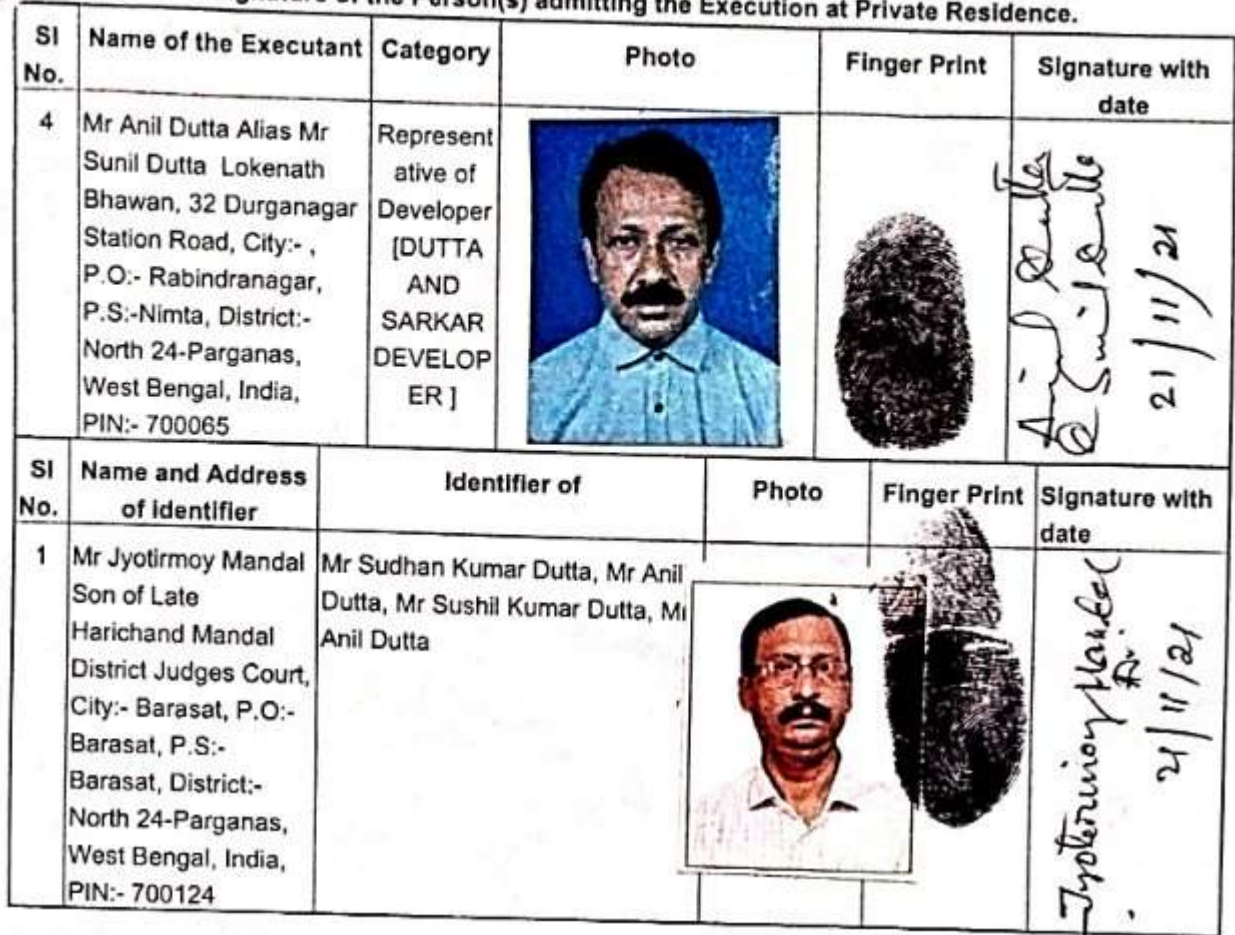 Signature of the Person(s) admitting the Execution at Private Residence.
Sl No.
Name of the Executant
Category
Photo
Finger Print
Signature with date
4
Mr Anil Dutta Alias Mr
Sunil Dutta Lokenath
Bhawan, 32 Durganagar
Station Road, City:- ,
P.O:- Rabindranagar,
P.S:-Nimta, District:-
North 24-Parganas,
West Bengal, India,
PIN:- 700065
Represent
ative of
Developer
[DUTTA
AND
SARKAR
DEVELOP
ER ]
Anil Dutta
@ Sunil Dutta
21/11/21
Sl No.
Name and Address
of identifier
Identifier of
Photo
Finger Print
Signature with
date
1
Mr Jyotirmoy Mandal
Son of Late
Harichand Mandal
District Judges Court,
City:- Barasat, P.O:-
Barasat, P.S:-
Barasat, District:-
North 24-Parganas,
West Bengal, India,
PIN:- 700124
Mr Sudhan Kumar Dutta, Mr Anil
Dutta, Mr Sushil Kumar Dutta, Mr
Anil Dutta
Jyotirmoy Mandal
21/11/21